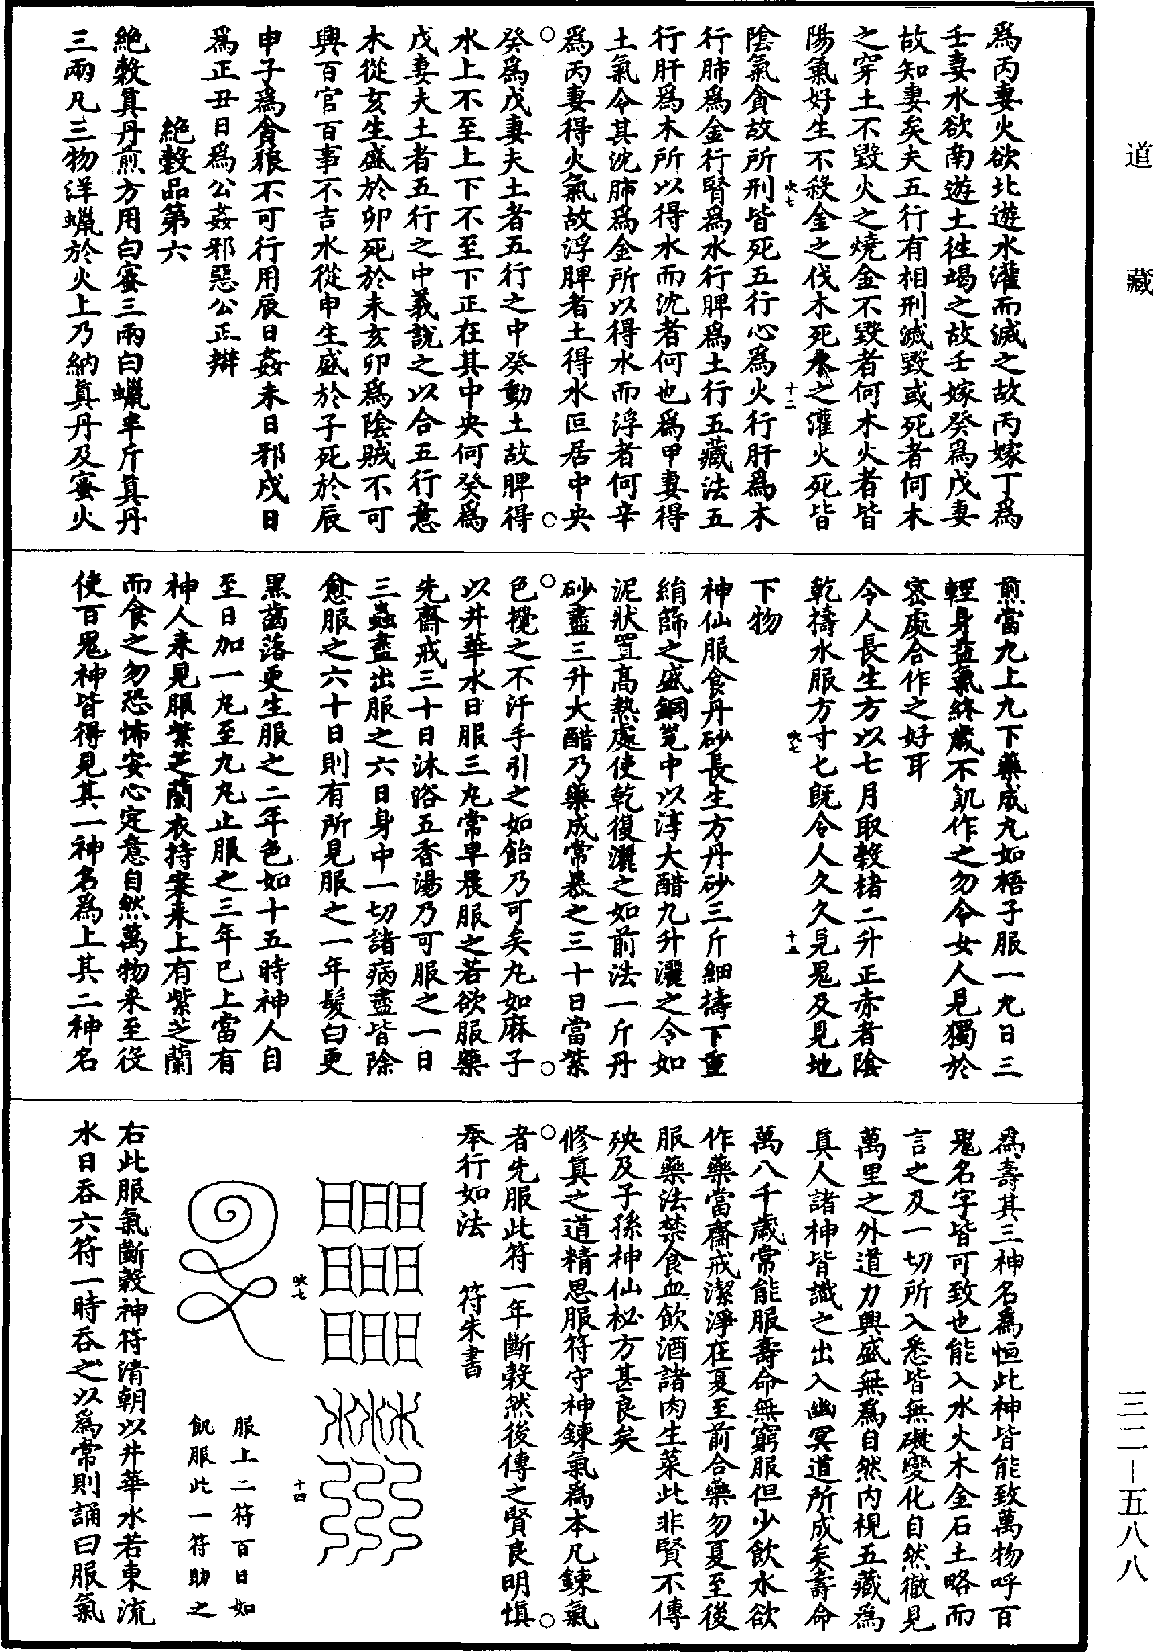 道藏
為丙妻火欲北遊水灌而滅之故丙嫁丁為
壬妻水欲南遊土徃竭之故壬嫁癸為戊妻
故知妻矣夫五行有相刑滅毀或死者何木
之穿土不毀火之燒金不毀者何木火者皆
陽氣好生不殺金之伐木死水之灌火死皆
陰氣貪故所刑皆死五行心為火行肝為木
行肺為金行腎為水行脾為土行五藏法五
行肝為木所以得水而沈者何也為甲妻得
土氣令其沈肺為金所以得水而浮者何辛
為丙妻得火氣故浮脾者土得水叵居中央
癸為戊妻夫土者五行之中癸動土故脾得
水上不至上下不至下正在其中央何癸為
戊妻夫土者五行之中義說之以合五行意
木從亥生盛於卯死於未亥卯為陰賊不可
興百官百事不吉水從申生盛於子死於辰
申子為貪狼不可行用辰日姦未日邪戌日
為正丑日為公姦邪惡公正辯
絕穀品第六
絕穀真丹煎方用白蜜三兩白蠟半斤真丹
三兩凡三物洋蠟於火上乃納真丹及蜜火
煎當九上九下藥成丸如梧子服一丸日三
輕身益氣終歲不飢作之勿令女人見獨於
密處合作之好耳
令人長生方以七月取穀楮二升正赤者陰
乾擣水服方寸匕既令人久久見鬼及見地
下物
神仙服食丹砂長生方丹砂三斤細擣下重
絹篩之盛銅筅中以淳大醋九升灑之令如
泥狀置高熱處使乾復灑之如前法一斤丹
砂盡三升大醋乃藥成常暴之三十日當紫
色攪之不汙手引之如飴乃可矣丸如麻子
以井華水日服三丸常卑晨服之若欲服藥
先齋戒三十日沐浴五香湯乃可服之一日
三蟲盡出服之六日身中一切諸病盡皆除
愈服之六十日則有所見服之一年髮白更
黑齒落更生服之二年色如十五時神人自
至日加一丸至九丸止服之三年已上當有
神人來見服紫芝蘭衣持案來上有紫芝蘭
而食之勿恐怖安心定意自然萬物來至役
使百鬼神皆得見其一神名為上其二神名
為壽其三神名為恒此神皆能致萬物呼百
鬼名字皆可致也能入水火木金石土略而
言之及一切所入悉皆無礙變化自然徹見
萬里之外道力興盛無為自然內視五藏為
真人諸神皆識之出入幽冥道所成矣壽命
萬八千歲常能服壽命無窮服但少飲水欲
作藥當齋戒潔淨在夏至前合藥勿夏至後
服藥法禁食血飲酒諸肉生菜此非賢不傳
殃及子孫神仙祕方甚良矣
修真之道精思服符守神鍊氣為本凡鍊氣
者先服此符一年斷穀然後傳之賢良明慎
奉行如法 符朱書
服上二符百日如
飢服此一符助之
右此服氣斷穀神符清朝以井華水若東流
水日吞六符一時吞之以為常則誦曰服氣
三二－五八八